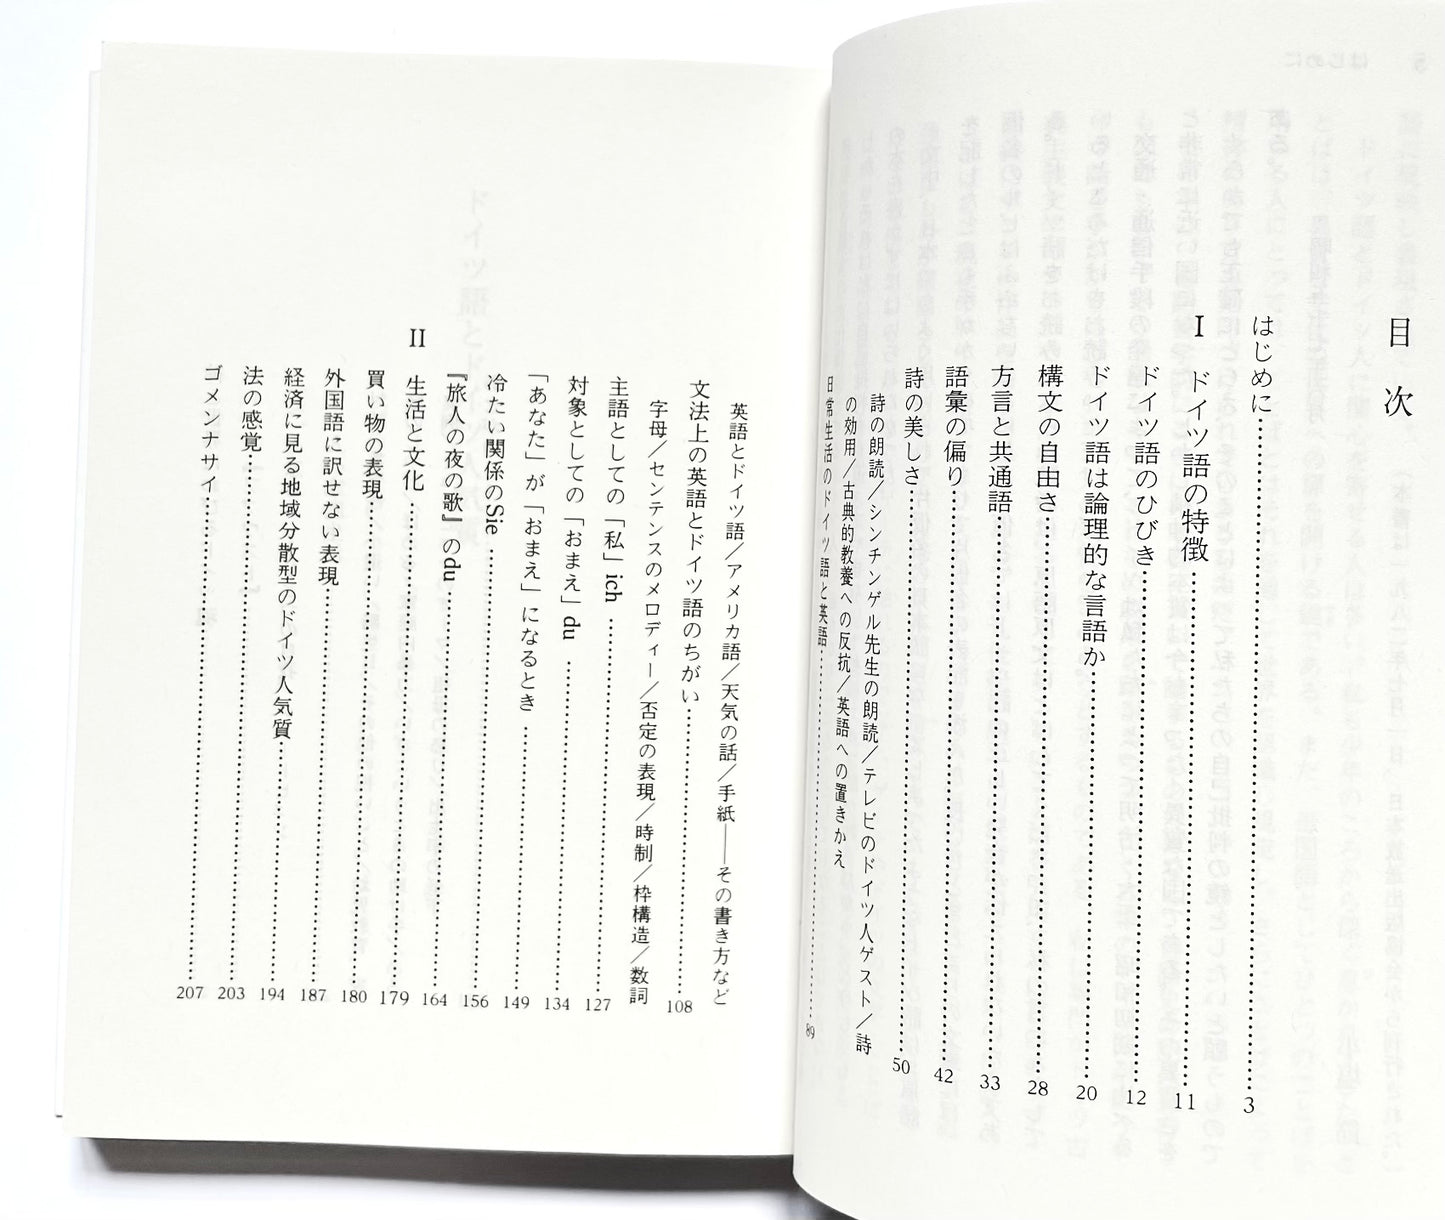 目次
はじめに……3
I ドイツ語の特徴……11
ドイツ語のひびき……12
ドイツ語は論理的な言語か……20
構文の自由さ……28
方言と共通語……33
語彙の偏り……42
詩の美しさ……50
詩の朗読／シンチンゲル先生の朗読／テレビのドイツ人ゲスト／詩
の効用／古典的教養への反抗／英語への置きかえ
日常生活のドイツ語と英語……89
英語とドイツ語／アメリカ語／天気の話／手紙――その書き方など
文法上の英語とドイツ語のちがい……108
字母／センテンスのメロディー／否定の表現／時制／枠構造／数詞
主語としての「私」ich……127
対象としての「おまえ」du……134
「あなた」が「おまえ」になるとき……149
冷たい関係のSie……156
『旅人の夜の歌』のdu……164
II 生活と文化……179
買い物の表現……180
外国語に訳せない表現……187
経済に見る地域分散型のドイツ人気質……194
法の感覚……203
ゴメンナサイ……207